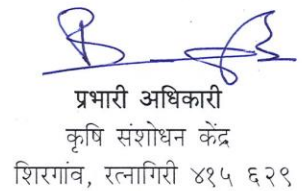 प्रभारी अधिकारी
कृषि संशोधन केंद्र
शिरगांव, रत्नागिरी ४१५ ६२९